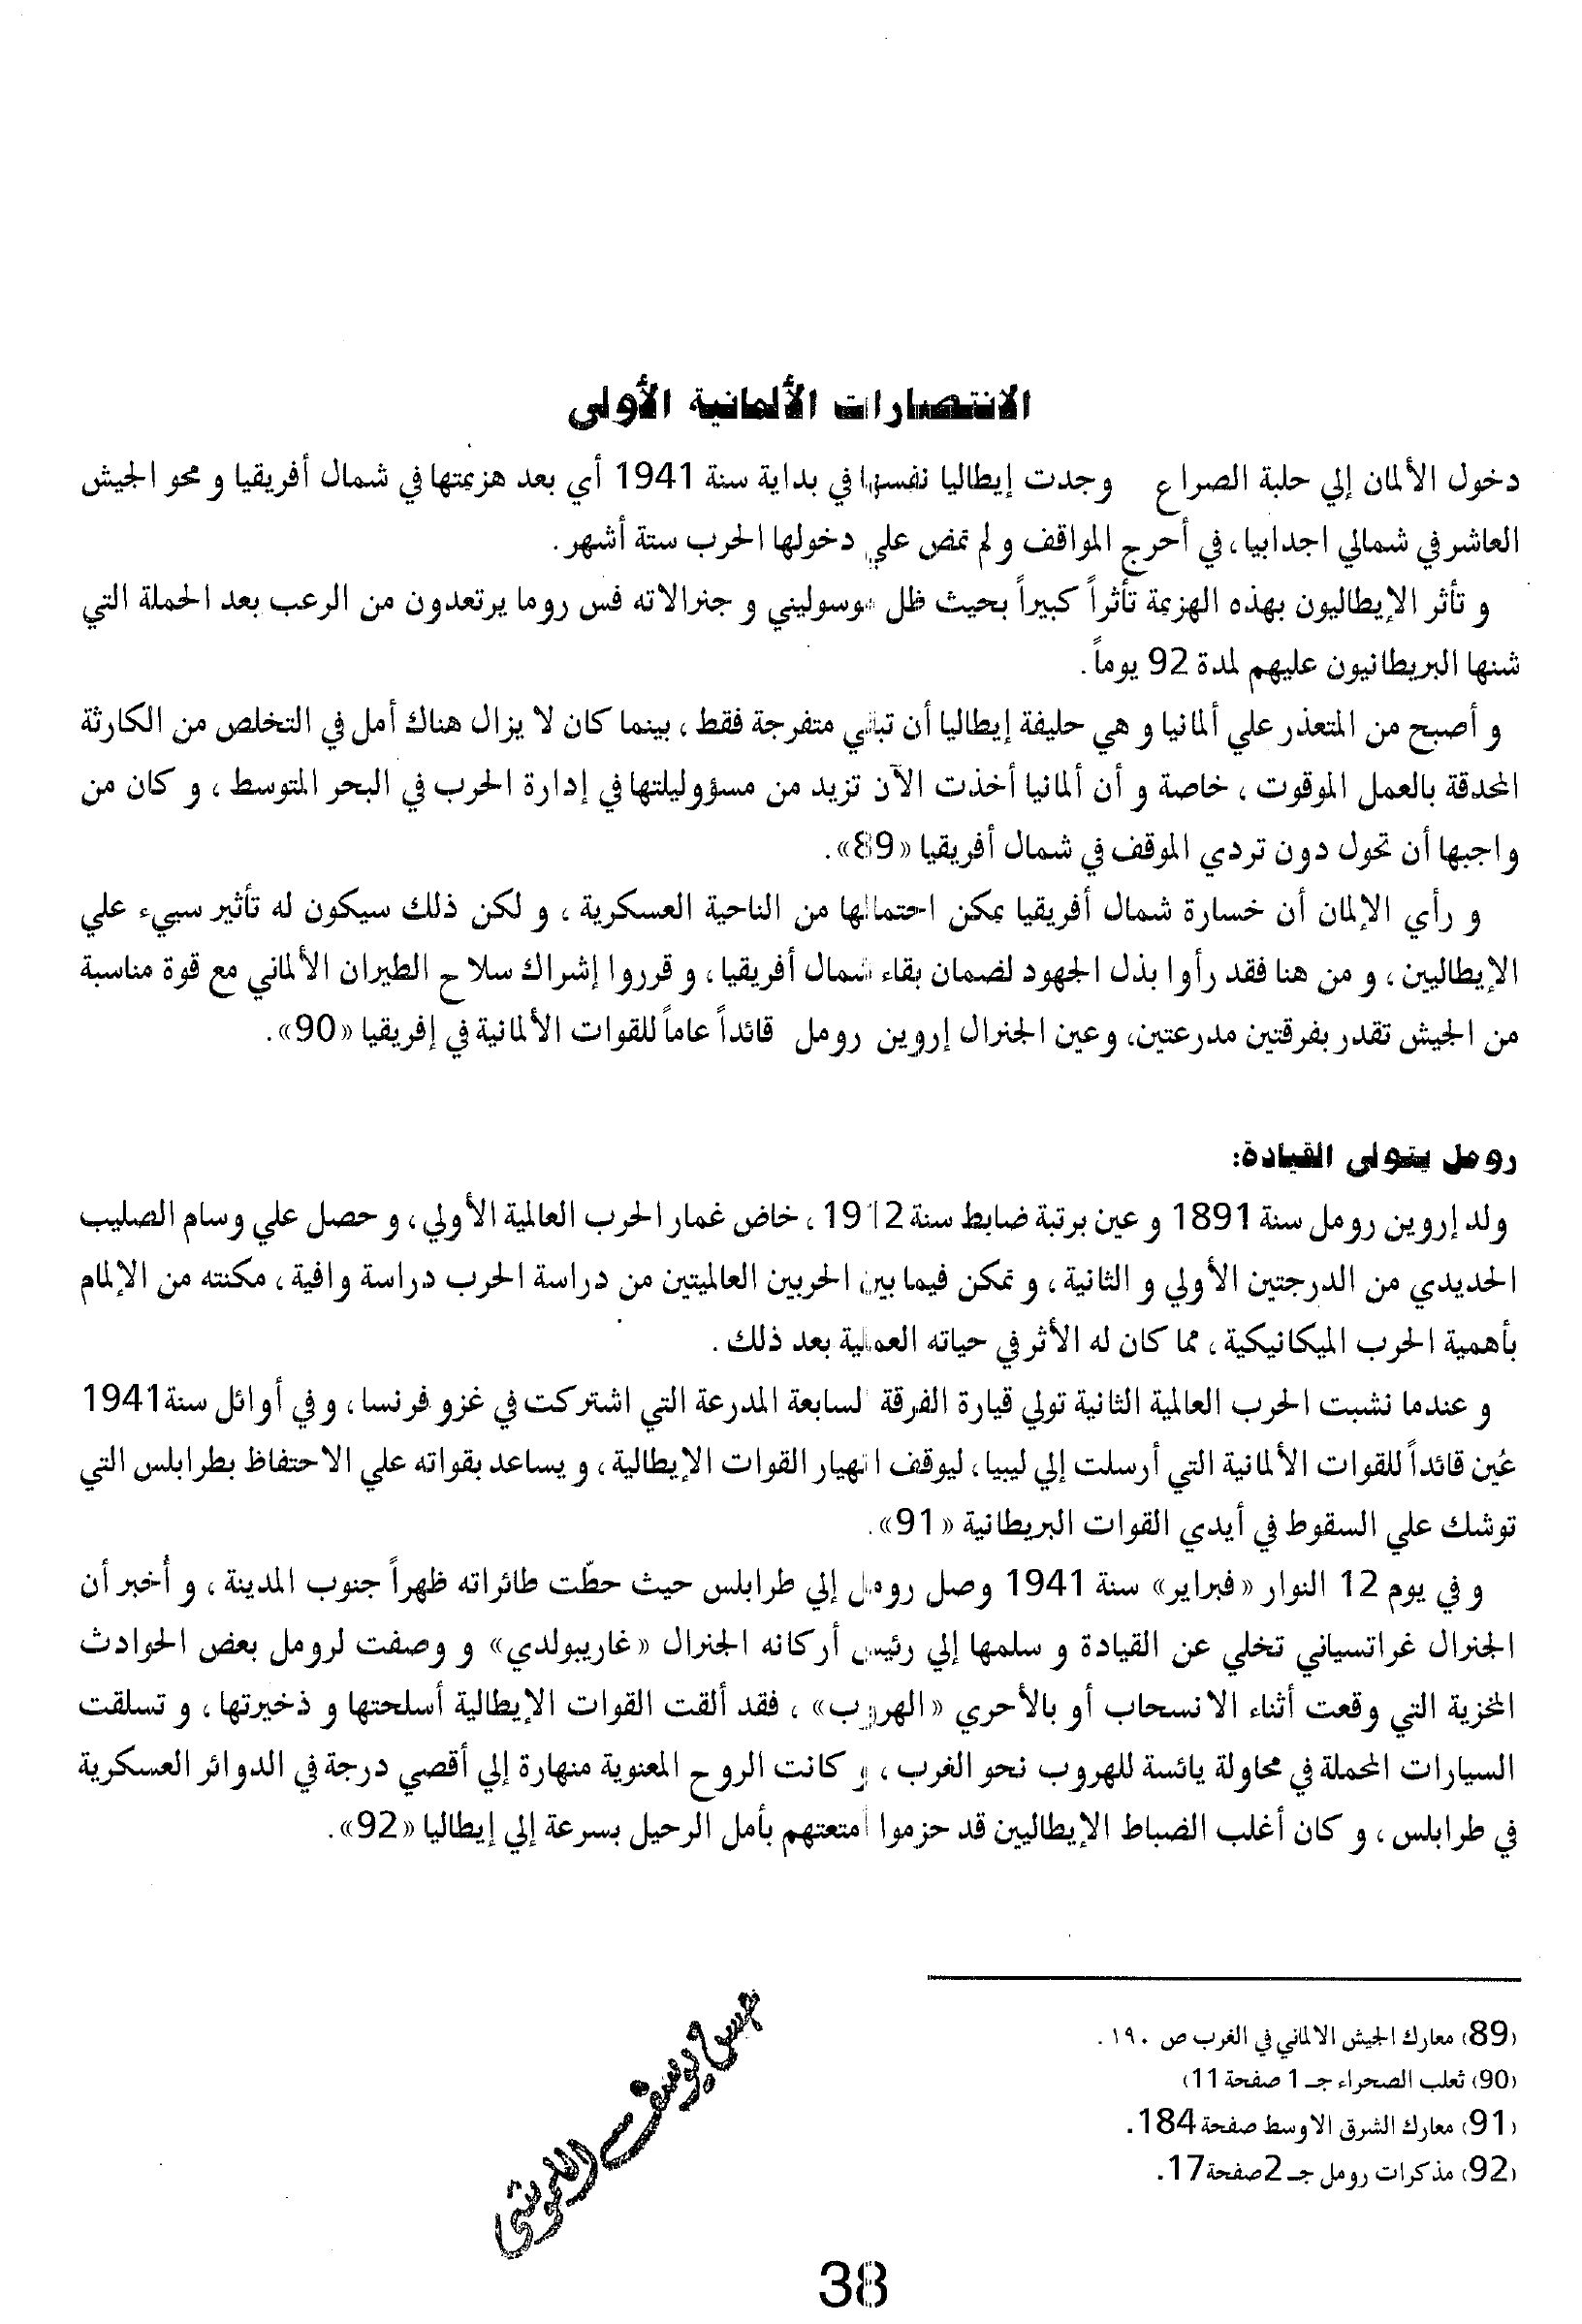 الانتصارات الألمانية الأولى
دخول الألمان إلي حلبة الصراع وجدت إيطاليا نفسها في بداية سنة 1941 أي بعد هزيمتها في شمال أفريقيا و محو الجيش
العاشر في شمالي اجدابيا، في أحرج المواقف و لم تمض علي دخولها الحرب ستة أشهر.
و تأثر الإيطاليون بهذه الهزيمة تأثراً كبيراً بحيث ظل موسوليني و جنرالاته فس روما يرتعدون من الرعب بعد الحملة التي
شنها البريطانيون عليهم لمدة 92 يوماً.
و أصبح من المتعذر علي ألمانيا و هي حليفة إيطاليا أن تبقي متفرجة فقط ، بينما كان لا يزال هناك أمل في التخلص من الكارثة
المحدقة بالعمل الموقوت ، خاصة و أن ألمانيا أخذت الآن تزيد من مسؤوليلتها في إدارة الحرب في البحر المتوسط ، و كان من
واجبها أن تحول دون تردي الموقف في شمال أفريقيا «89».
و رأي الإلمان أن خسارة شمال أفريقيا يمكن احتمالها من الناحية العسكرية ، و لكن ذلك سيكون له تأثير سييء علي
الإيطاليين ، و من هنا فقد رأوا بذل الجهود لضمان بقاء شمال أفريقيا ، و قرروا إشراك سلاح الطيران الألماني مع قوة مناسبة
من الجيش تقدر بفرقتين مدرعتين، وعين الجنرال إروين رومل قائداً عاماً للقوات الألمانية في إفريقيا «90».
رومل يتولى القيادة:
ولد إروين رومل سنة 1891 و عين برتبة ضابط سنة 1912 ، خاض غمار الحرب العالمية الأولي، و حصل علي وسام الصليب
الحديدي من الدرجتين الأولي و الثانية ، و تمكن فيما بين الحربين العالميتين من دراسة الحرب دراسة وافية ، مكنته من الإلمام
بأهمية الحرب الميكانيكية ، مما كان له الأثر في حياته العملية بعد ذلك .
و عندما نشبت الحرب العالمية الثانية تولي قيارة الفرقة السابعة المدرعة التي اشتركت في غزو فرنسا ، و في أوائل سنة 1941
عُين قائداً للقوات الألمانية التي أرسلت إلي ليبيا ، ليوقف انهيار القوات الإيطالية ، و يساعد بقواته علي الاحتفاظ بطرابلس التي
توشك علي السقوط في أيدي القوات البريطانية «91».
و في يوم 12 النوار «فبراير» سنة 1941 وصل رومل إلي طرابلس حيث حطّت طائراته ظهراً جنوب المدينة ، و أُخبر أن
الجنرال غراتسياني تخلي عن القيادة و سلمها إلي رئيس أركانه الجنرال «غاريبولدي» و وصفت لرومل بعض الحوادث
المخزية التي وقعت أثناء الانسحاب أو بالأحري «الهروب» ، فقد ألقت القوات الإيطالية أسلحتها و ذخيرتها ، و تسلقت
السيارات المحملة في محاولة يائسة للهروب نحو الغرب ، و كانت الروح المعنوية منهارة إلي أقصي درجة في الدوائر العسكرية
في طرابلس ، و كان أغلب الضباط الإيطاليين قد حزموا أمتعتهم بأمل الرحيل بسرعة إلي إيطاليا «92».
(89) معارك الجيش الالماني في الغرب ص ١٩٠ .
(90) ثعلب الصحراء جـ 1 صفحة 11)
(91) معارك الشرق الاوسط صفحة 184.
(92) مذكرات رومل جـ 2 صفحة 17.
يوسف
38